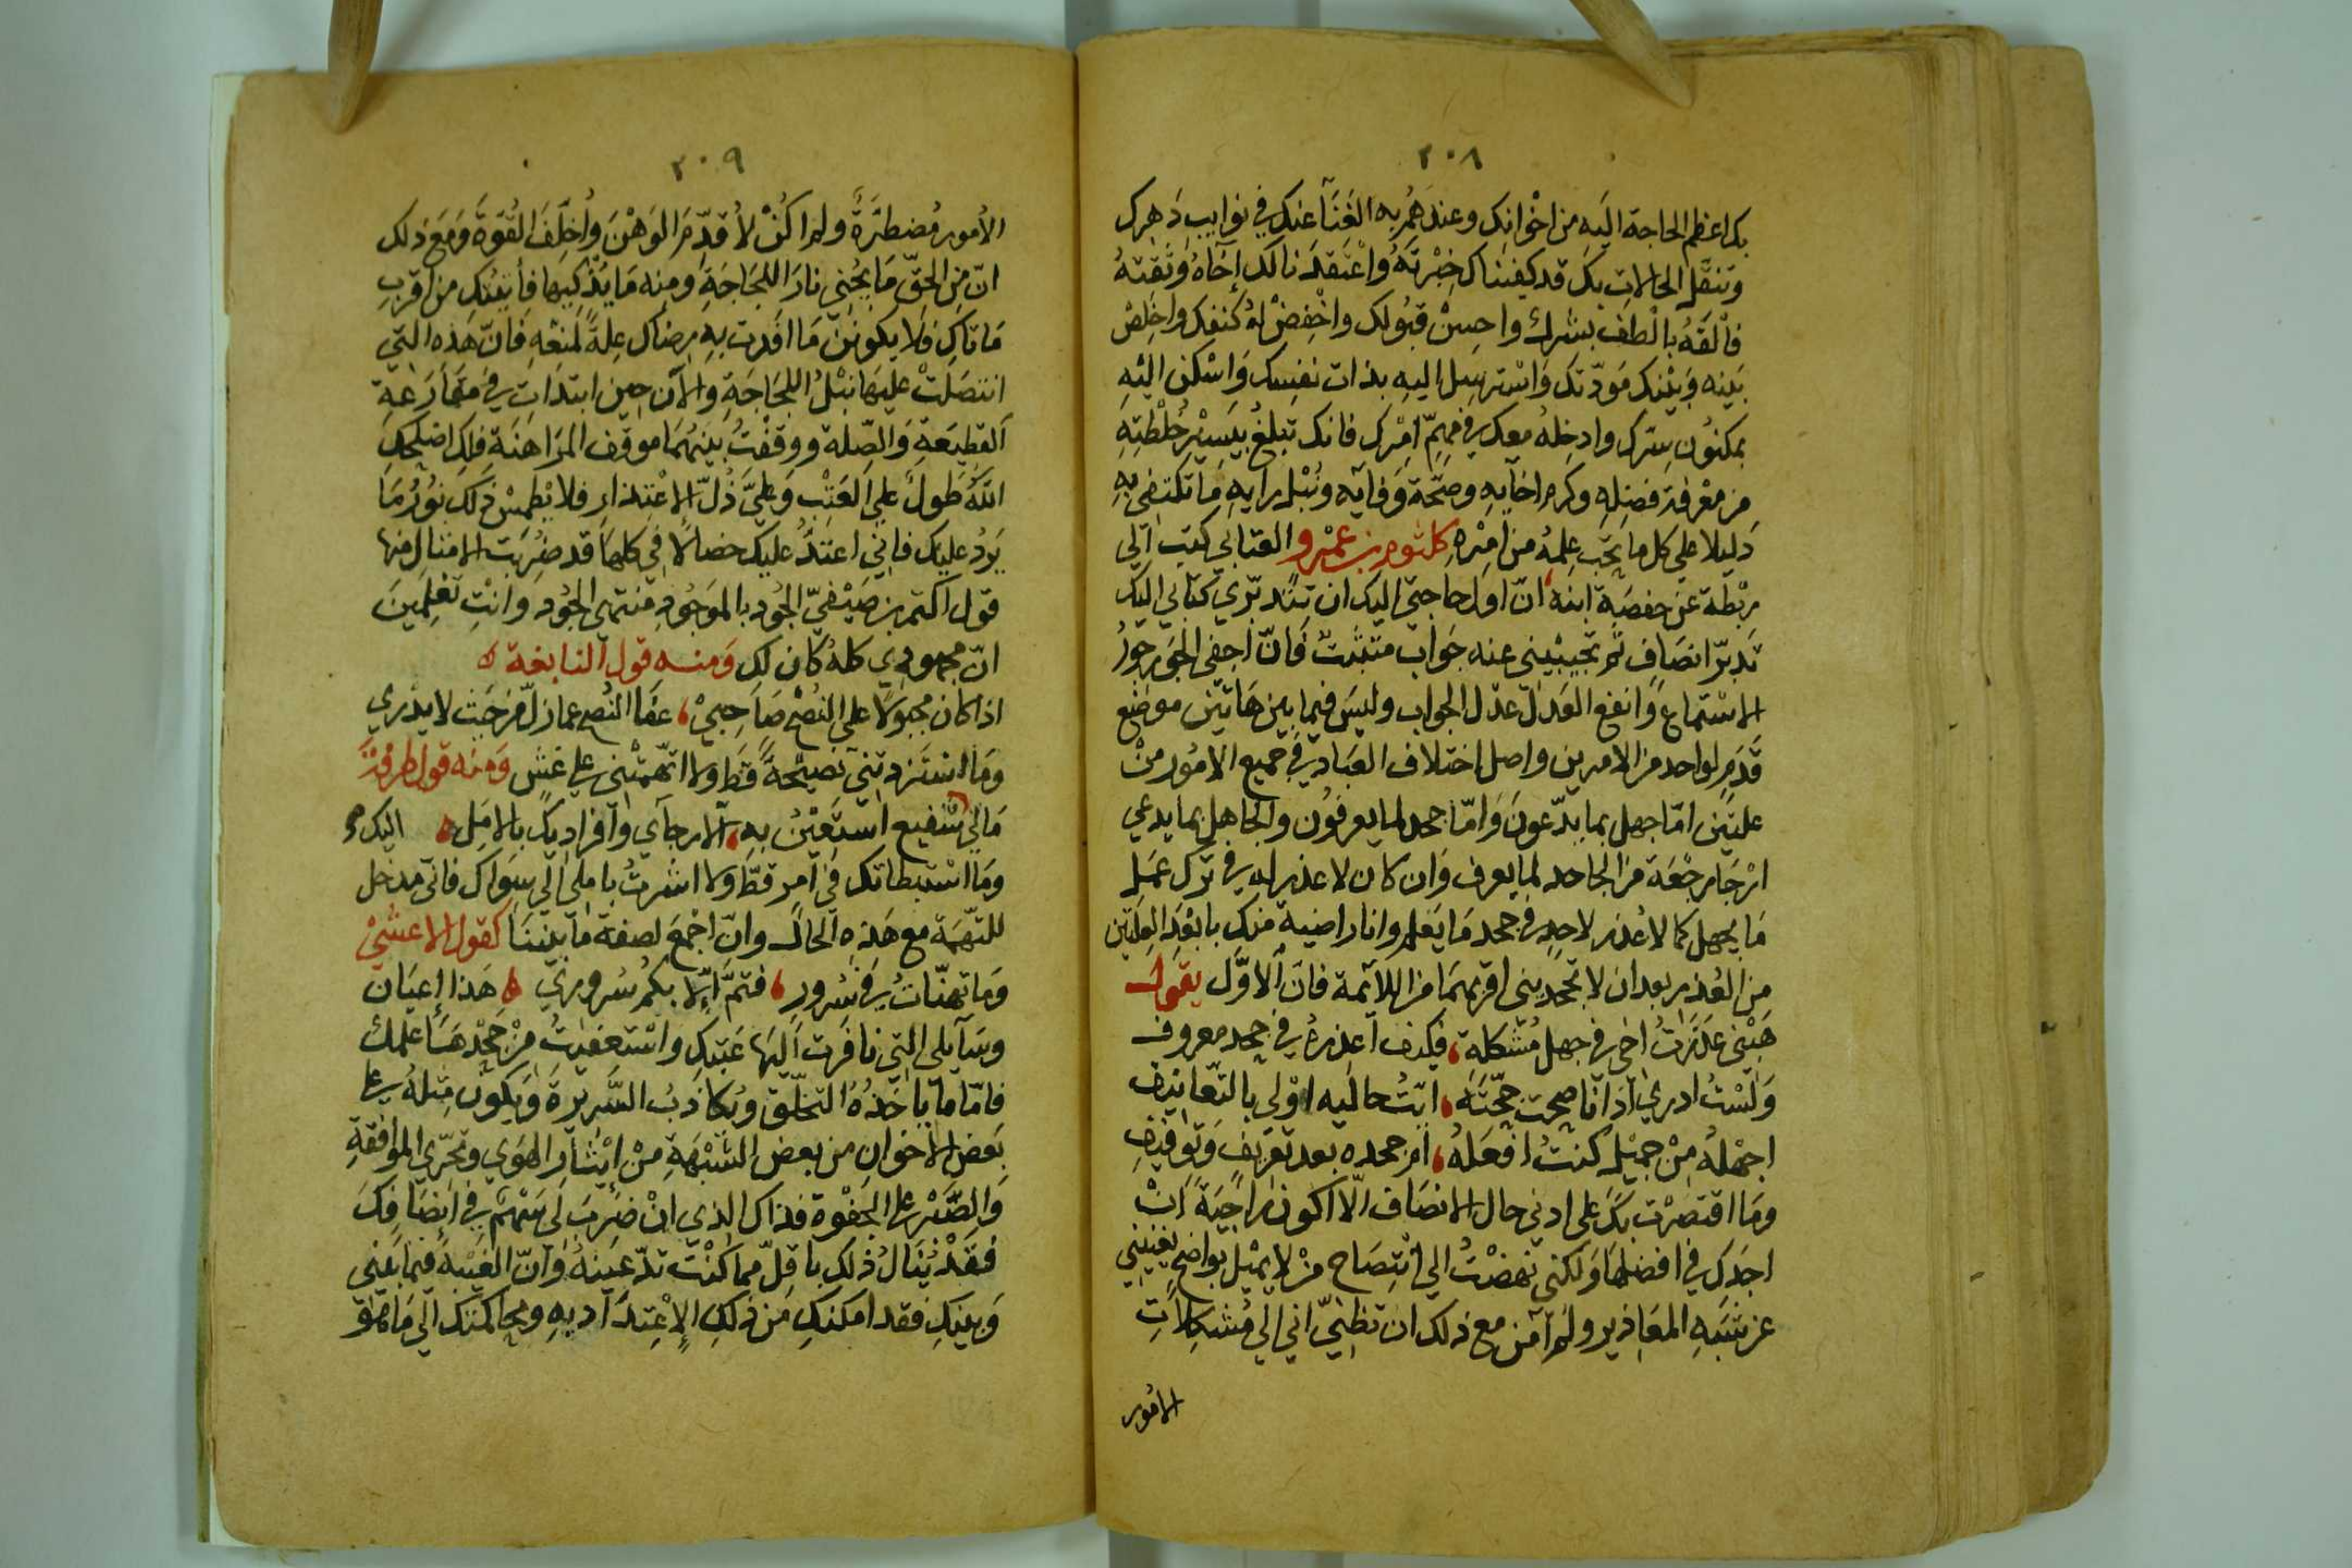 ٢٠٨
بك اعظم الحاجة اليه من اخوانك وعندهم به الغنآ عنك في نوايب دهرك
وتنقل الحالات بك قد كفيناك خبرته واعتقدنا لك إخاه وثقته
فالقه بالطف بشرك واحسن قبولك واخفض له كنفك واخلص
بينه وبينك مودتك واسترسل اليه بذات نفسك واسكن اليه
بمكنون سرك وادخله معك في مهم امرك فانك تبلغ بيسير خلطته
من معرفة فضله وكرم اخآيه وصحة وفآيه ونبل رايه ما تكتفي به
دليلا على كل ما يحب علمه من امره كلثوم بن عمرو العتابي كتب الي
ربطة عن حفصة ابنة ان اول حاجتي اليك ان تتدبري كتابي اليك
تدبر انصاف ثم تجيبيني عنه جواب متثبت فان اجفى الجور جور
الاستماع وانفع العدل عدل الجواب وليس فيما بين هاتين موضع
قدم لواحد من الامرين واصل اختلاف العباد في جميع الامور من
علتين اما جهل بما يدعون واما جحد لما يعرفون والجاهل بما يدعي
ارجا رجعة من الجاحد لما يعرف وان كان لا عذر له في ترك عمل
ما يجهل كما لا عذر لاحد في جحد ما يعلم وانا راضية منك بابعد العلتين
من العذر بعد ان لا تجديني اقربهما من اللآئمة فان الاول يقول
هبني عذرت اخي في جهل مشكلة فكيف اعذره في جحد معروف
ولست ادري اذا ناصحت حجته ايت حاليه اولي بالتعانيف
اجهله من جميل كنت افعله ام جحده بعد تعريف وتوقيف
وما اقتصرت بك على ادني حال الانصاف الا اكون راجية ان
اجدك في افضلها ولكني نهضت الي انتصاح من لا يميل بواضح يقيني
عن شبه المعاذير ولم آمن مع ذلك ان تظني اني الي مشكلات
الامور
٢٠٩
الامور مضطرة ولم اكن لاقدم الوهن واخلف القوة ومع ذلك
ان من الحق ما يجني نار اللجاجة ومنه ما يذكيها فأيتك من اقرب
ماتاك فلا يكونن ما افدت به رضاك علة لمنعه فان هذه التي
انتصلت عليها نبل اللجاجة والآن حين ابتدات في مقارعة
القطيعة والصلة ووقفت بينهما موقف المراهنة فلك اصلحك
الله طول علي العتب وعلي ذل الاعتذار فلا يطمس ذلك نور ما
يرد عليك فاني اعتد عليك خصالا في كلها قد ضربت الامثال منها
قول اكتم بن صيفي الجود بالموجود منتهى الجود وانت تعلمين
ان مجهودي كله كان لك ومنه قول النابغة
اذا كان مجبولا على النصح صاحبي عفا النصح عما زل من حيث لا يدري
وما استزدتني نصيحة قط ولا اتهمتني على غش ومنه قول طرفة
مالي شفيع استعين به الا رجآي وافراديك بالامل اليك
وما استبطاتك في امر قط ولا اشرت باملي الي سواك فاني مدخل
للتهمة مع هذه الحال وان اجمع لصفة ما بيننا كقول الاعشي
وما تهنات في سرور فتم إلا بكم سروري هذا إعيان
وسآيلي التي نافرت اليها عتبك واستعفيت من جحدها علمك
فاما ما ياخذه التخلق ويكاذب السريرة ويكون مثله على
بعض الاخوان من بعض الشبهة من إيثار الهوي وتحري الموافقة
والصبر على الجفوة فذاك الذي ان ضرب لي سهم في إنصافك
فقد ينال ذلك باقل مما كنت تدعينه وان الغيبة فيما بيني
وبينك فقد امكنك من ذلك الإعتدآد به ومحاكمتك الي ما هو